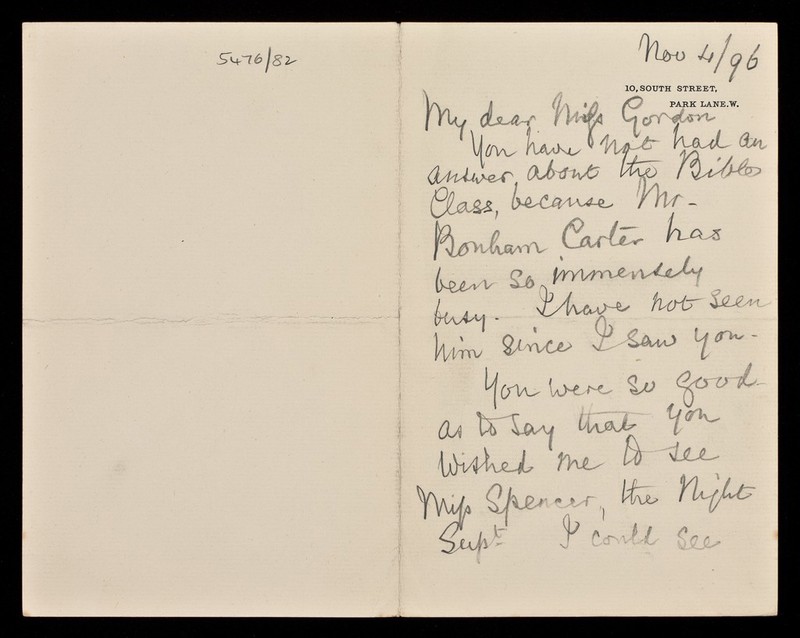 5476/82
Nov 4/96
10, SOUTH STREET,
PARK LANE. W.
My dear Miss Gordon
You have not had an
answer, about the Bible
Class, because Mr.
Bonham Carter has
been so immensely
busy. I have not seen
him since I saw you.
You were so good
as to say that you
wished me to see
Miss Spencer, the Night
Supt I could see